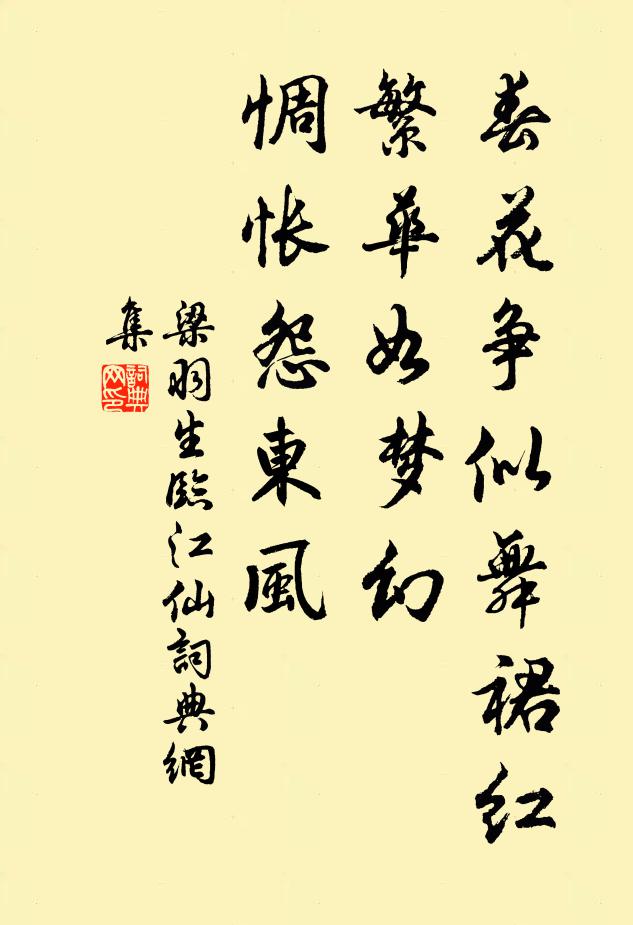 春花争似舞裙红
繁華如梦幻
惆怅怨東風
梁羽生臨江仙詞典網
集
詞典网印